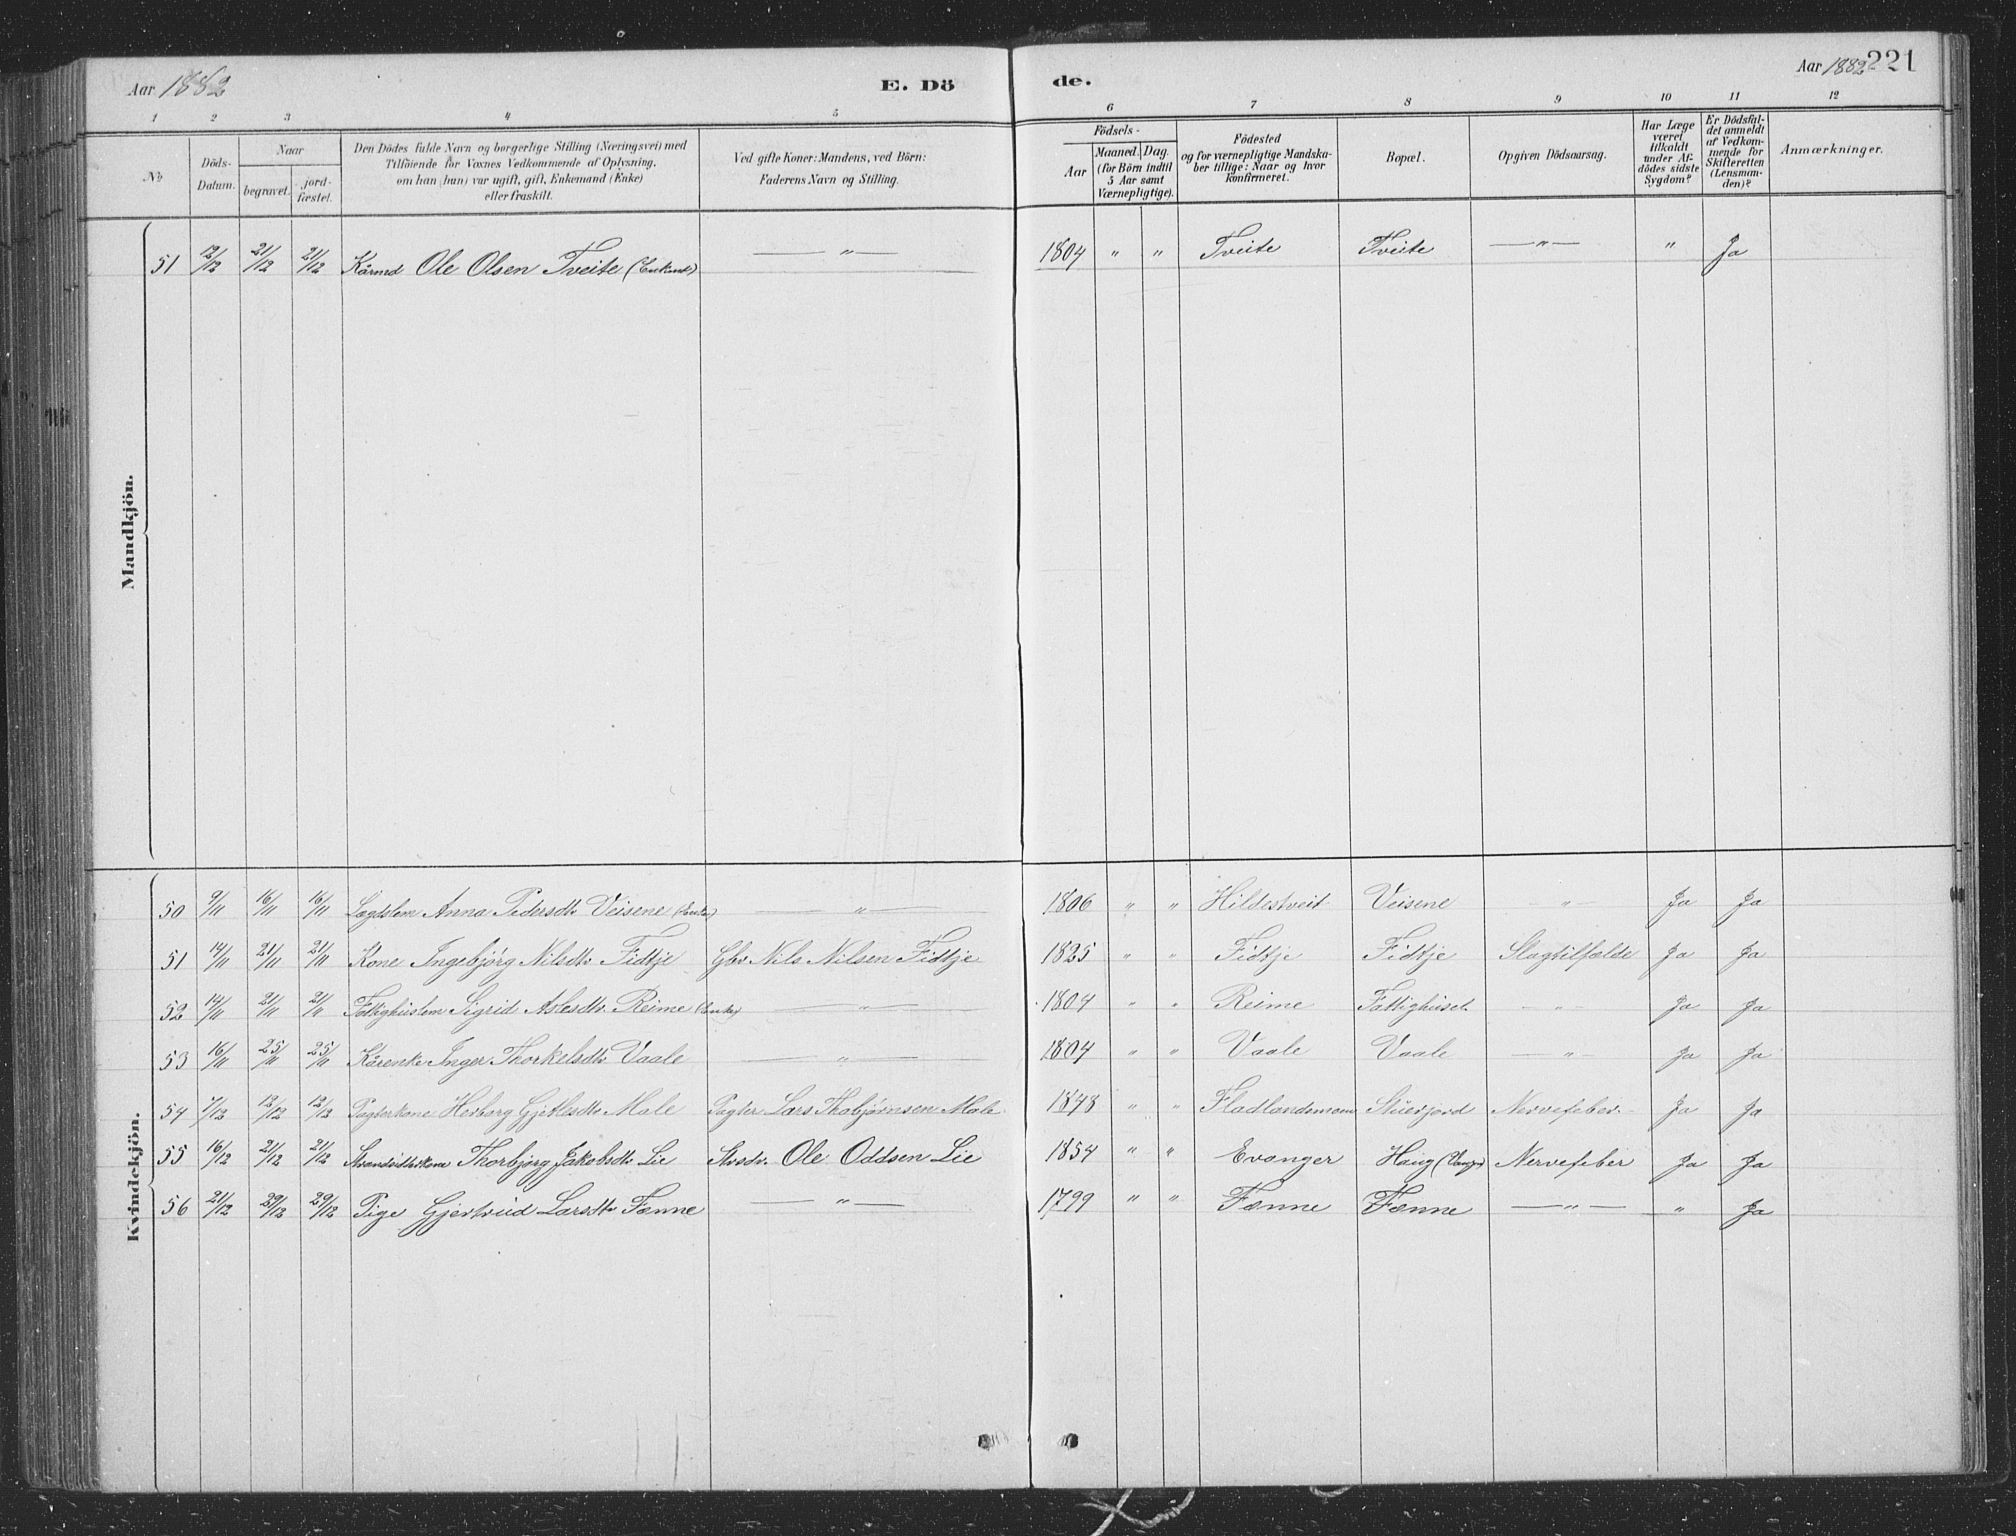 Aar 1882 E. Dö de. Aar 1882 221
1 2 3 4 5 6 7 8 9 10 11 12
No.
Döds-Datum.
Naar
begravet.
jord-fæstet.
Den Dödes fulde Navn og borgerlige Stilling (Næringsvei) med
Tilföiende for Voxnes Vedkommende af Oplysning,
om han (hun) var ugift, gift, Enkemand (Enke)
eller fraskilt.
Ved gifte Koner: Mandens, ved Börn:
Faderens Navn og Stilling.
Födsels-
Aar
Maaned. Dag.
(for Börn indtil
5 Aar samt
Værnepligtige).
Födested
og for værnepligtige Mandska-
ber tillige: Naar og hvor
konfirmeret.
Bopæl.
Opgiven Dödsaarsag.
Har Læge
været
tilkaldt
under Af-
dödes sidste
Sygdom?
Er Dödsfal-
det anmeldt
af Vedkom-
mende for
Skifteretten
(Lensman-
den)?
Anmærkninger.
Mandkjön.
51 12/12 21/12 21/12 Kårmd Ole Olsen Tveite (Enkem) — " — 1804 " " Tveite Tveite — " — " Ja
Kvindekjön.
50 9/11 16/11 16/11 Lægdslem Anna Pedersdtr Veisene (Enke) — " — 1806 " " Hildestveit Veisene — " — Ja Ja
51 14/11 21/11 21/11 Kone Ingebjörg Nilsdtr Fidtje Gbr Nils Nilsen Fidtje 1825 " " Fidtje Fidtje Slagtilfælde Ja Ja
52 14/11 21/11 21/11 Fattighuslem Sigrid Aslesdtr. Reime (Enke) — " — 1804 " " Reime Fattighuset " Ja Ja
53 16/11 25/11 25/11 Kårenke Inger Thorkelsdtr Vaale — " — 1804 " " Vaale Vaale — " — Ja Ja
54 7/12 12/12 12/12 Pagterkone Herborg Gjetlesdtr Male Pagter Lars Thobjørnsen Male 1848 " " Fladlandsmoen Nervefeber Ja Ja
55 16/12 21/12 21/12 Strandsidderkone Thorbjørg Jakobsdtr Lie Strsdr. Ole Oddsen Lie 1854 " " Evanger Haug Nervefeber Ja Ja
56 21/12 29/12 29/12 Pige Gjertrud Larsdtr Fænne — " — 1799 " " Fænne Fænne — " — " Ja